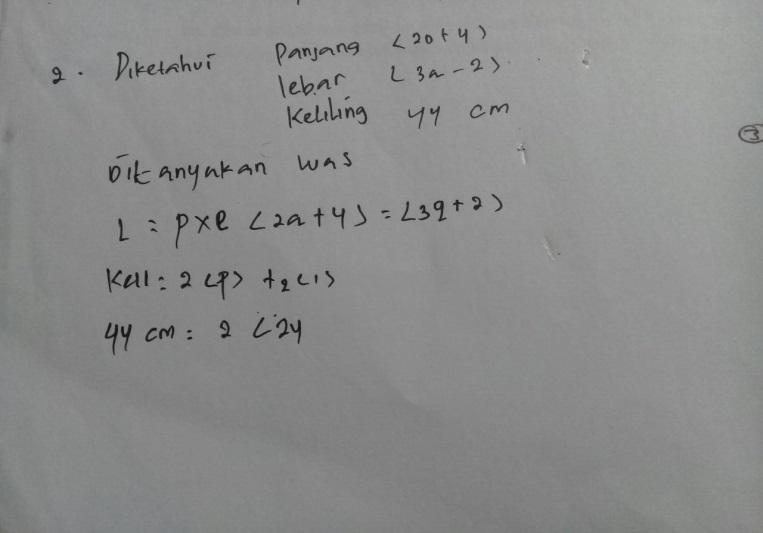 2. Diketahui Panjang (2a+4)
lebar (3a-2)
Keliling 44 cm
③
Ditanyakan Luas
L = pxl (2a+4) = (3a+2)
Kell = 2 (p) + 2 (l)
44 cm = 2 (24